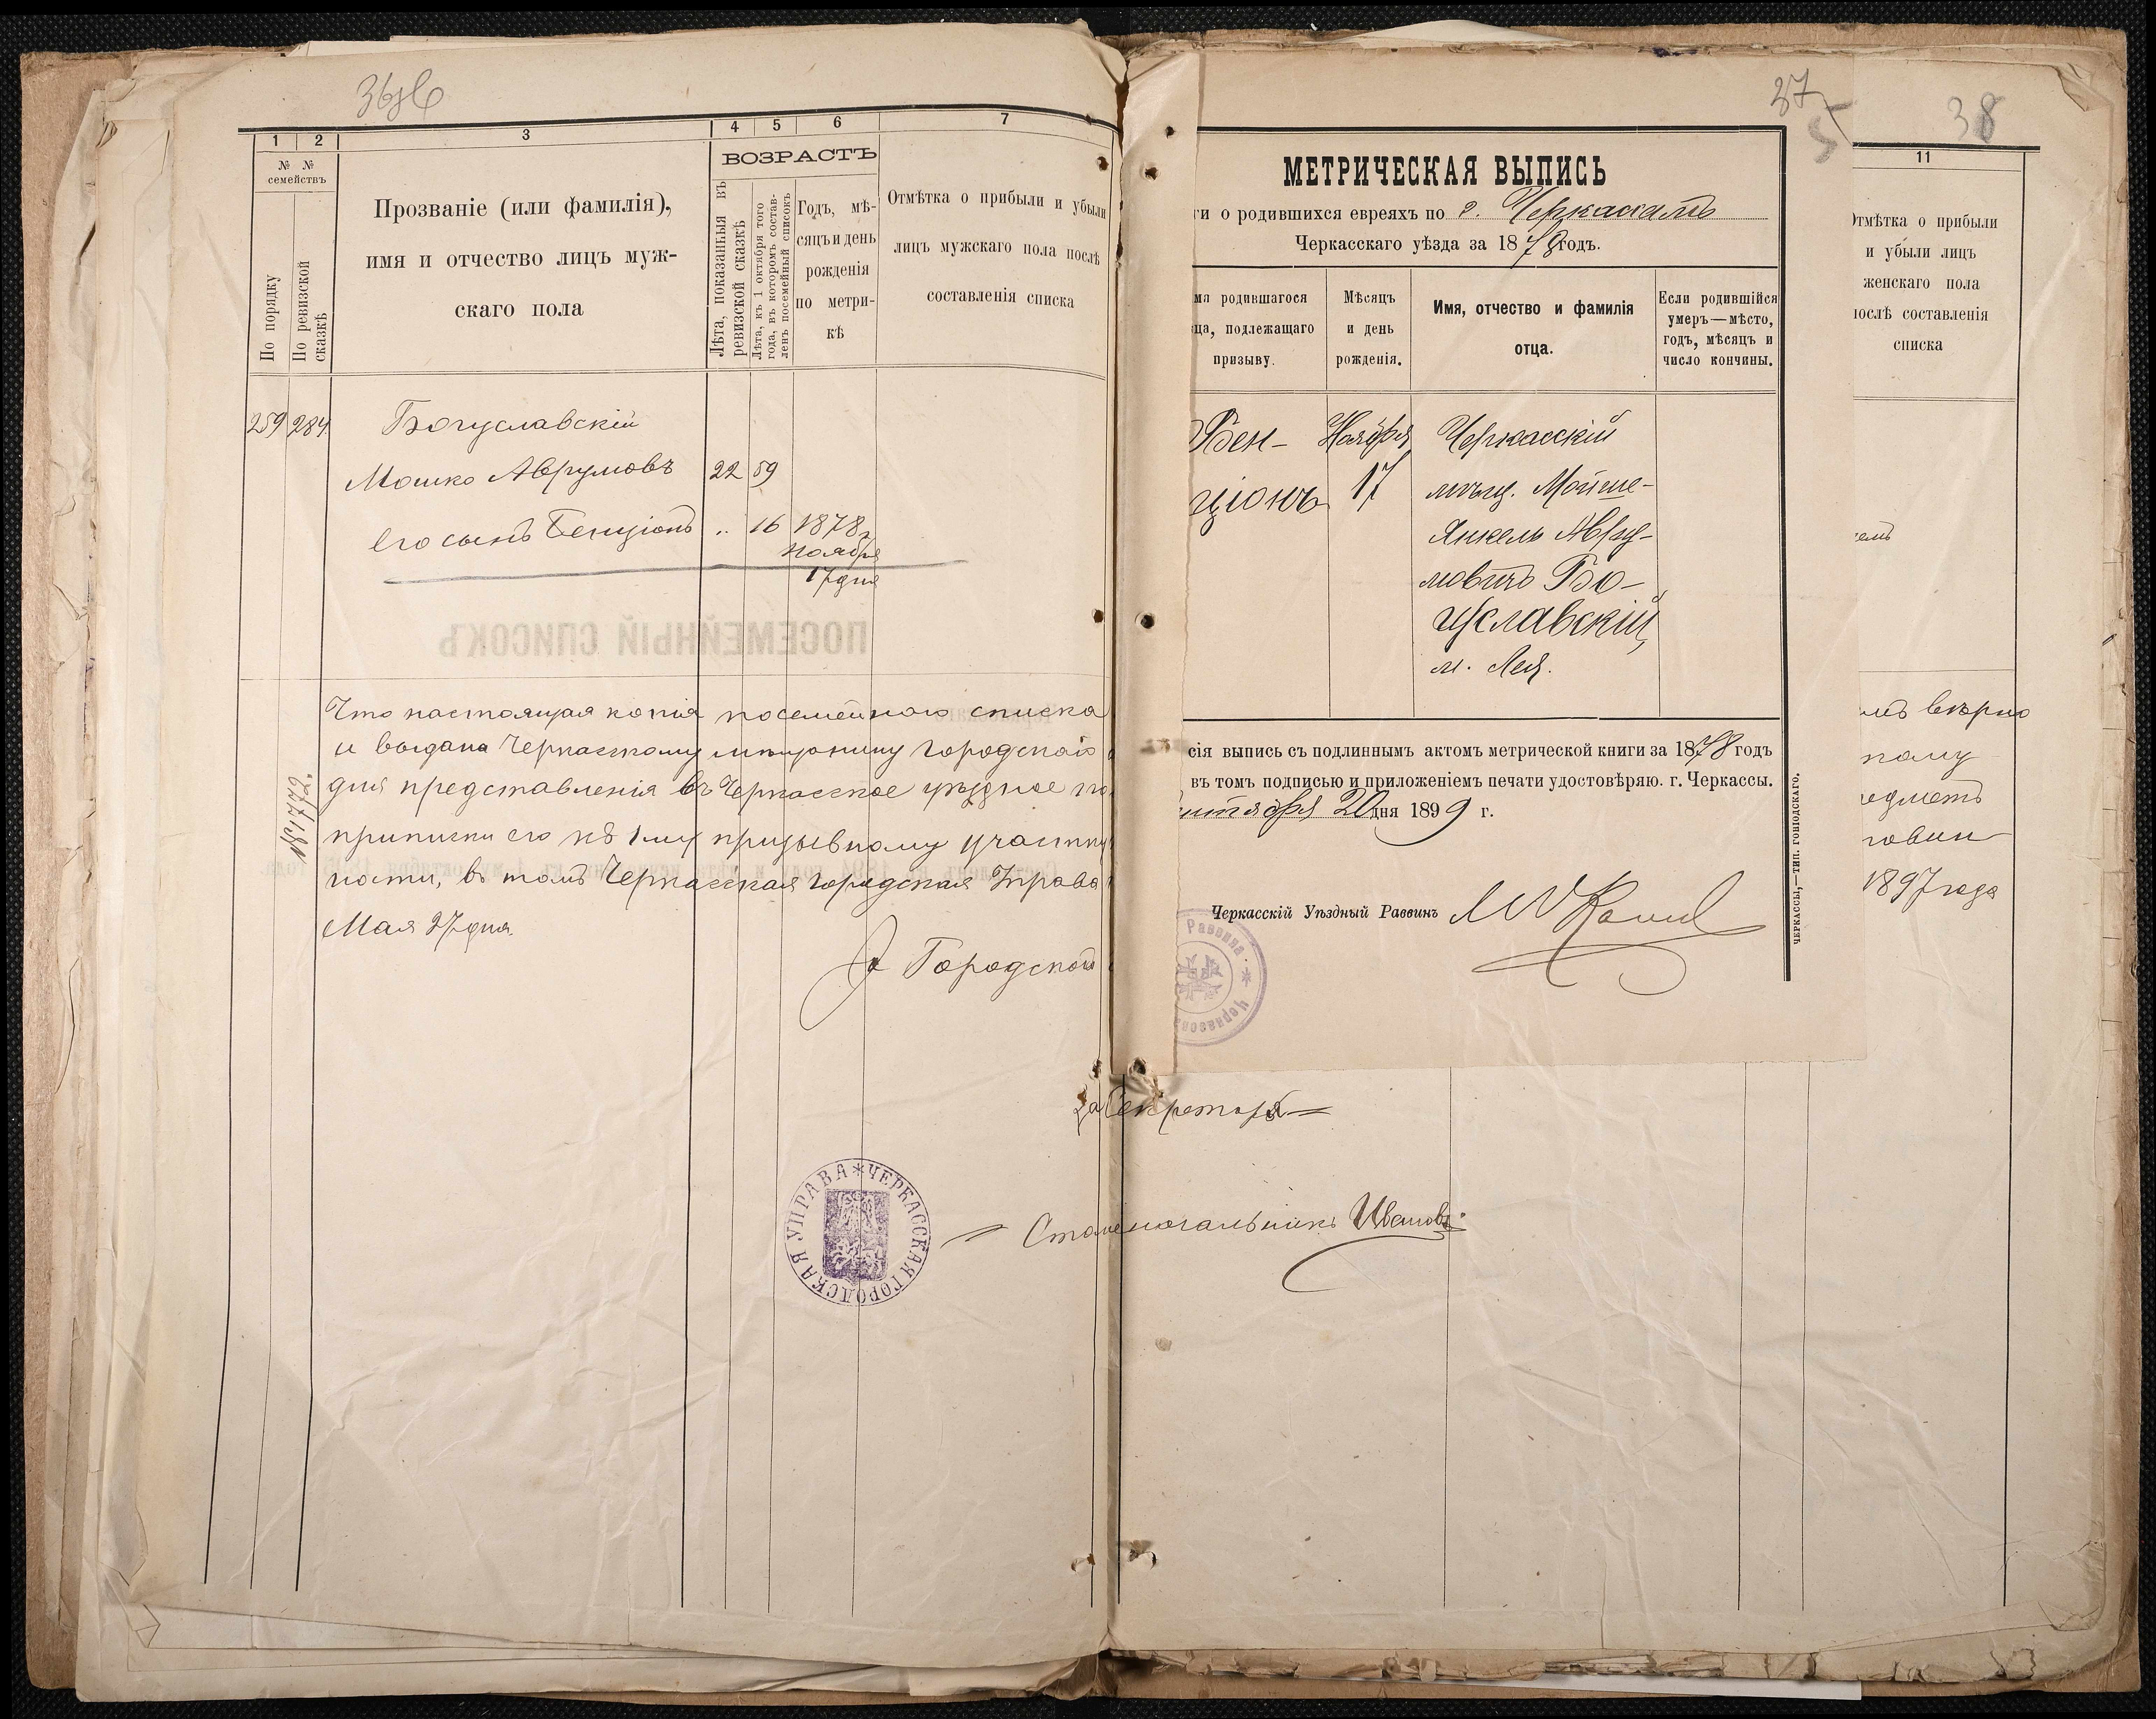 1
2
3
4
5
6
7
№ №
семействъ
По порядку
По ревизской
сказкѣ
Прозваніе (или фамилія),
имя и отчество лицъ муж-
скаго пола
ВОЗРАСТЪ
Лѣта, показанныя въ
ревизской сказкѣ
Лѣта, къ 1 октября того
года, въ которомъ состав-
ленъ посемейный списокъ
Годъ, мѣ-
сяцъ и день
рожденія
по метри-
кѣ
Отмѣтка о прибыли и убыли
лицъ мужскаго пола послѣ
составленія списка
259 284. Богуславскій
Мошко Аврумовъ 22 59
Его сынъ Бенціонъ .. 16 1878 г
Ноября
17 дня
ПОСЕМЕЙНЫЙ СПИСОКЪ
Что настоящая копія посемейнаго списка
и выдана Черкасскому мѣщанину Городскаго
для представленія въ Черкасское уѣздное по
приписки его къ 1му призывному участку
ности, въ томъ Черкасская Городская Управа
Мая 27 дня.
№ 1772.
Городской
за Секретаря
Столоначальникъ Ивановъ
ЧЕРКАССКАЯ ГОРОДСКАЯ УПРАВА
37
МЕТРИЧЕСКАЯ ВЫПИСЬ
ги о родившихся евреяхъ по г. Черкассамъ
Черкасскаго уѣзда за 1878 годъ.
мя родившагося
ца, подлежащаго
призыву.
Мѣсяцъ
и день
рожденія.
Имя, отчество и фамилія
отца.
Если родившійся
умеръ—мѣсто,
годъ, мѣсяцъ и
число кончины.
Бен-
ціонъ
Ноября
17
Черкасскій
мѣщ. Мойше-
Янкель Авру-
мовичъ Бо-
гуславскій,
м. Лея.
сія выпись съ подлиннымъ актомъ метрической книги за 1878 годъ
въ томъ подписью и приложеніемъ печати удостовѣряю. г. Черкассы.
нтября 20 дня 1899 г.
Черкасскій Уѣздный Раввинъ
Раввина
ЧЕРКАССЫ,—ТИП. ГОВІОДСКАГО.
38
11
Отмѣтка о прибыли
и убыли лицъ
женскаго пола
послѣ составленія
списка
мъ вѣрно
ному
1897 года